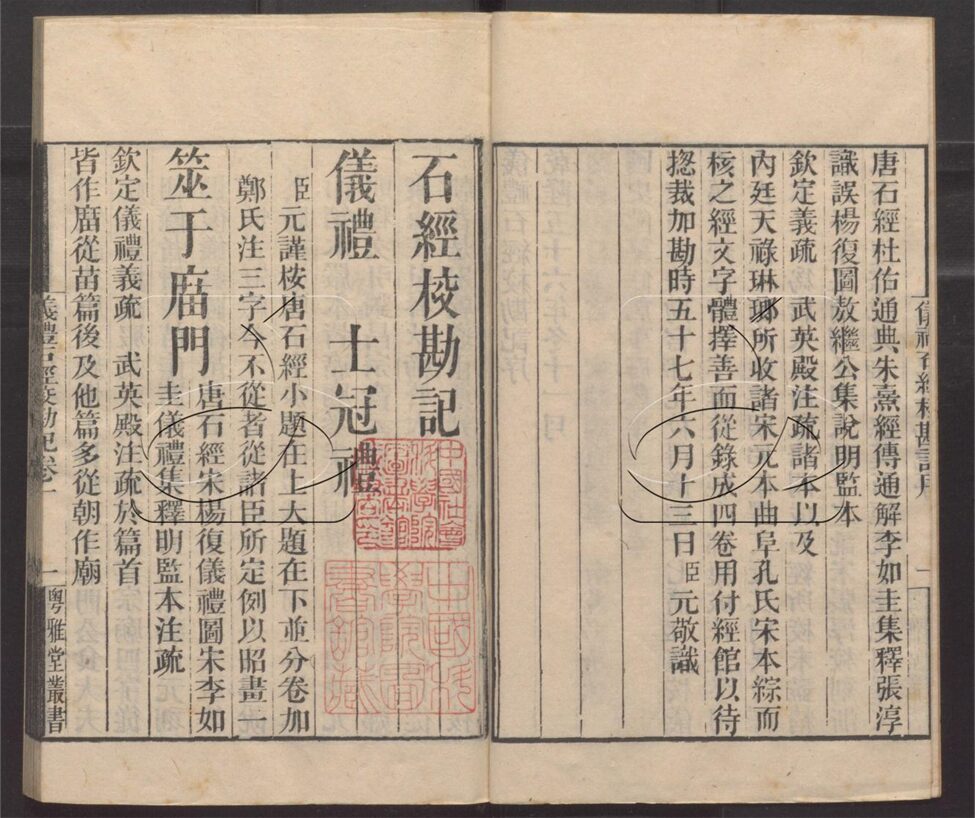 唐石經杜佑通典朱熹經傳通解李如圭集釋張淳
識誤楊復圖敖繼公集說明監本
欽定義疏 武英殿注疏諸本以及
內廷天祿琳瑯所收諸宋元本曲阜孔氏宋本綜而
核之經文字體擇善而從錄成四卷用付經館以待
揔裁加勘時五十七年六月十三日臣元敬識
石經校勘記
儀禮 士冠禮
臣元謹桉唐石經小題在上大題在下並分卷加
鄭氏注三字今不從者從諸臣所定例以昭畫一
筮于庿門
唐石經宋楊復儀禮圖宋李如
圭儀禮集釋明監本注疏
欽定儀禮義疏 武英殿注疏於篇首
皆作庿從苗篇後及他篇多從朝作廟
儀禮石經校勘記卷一
一
粵雅堂叢書